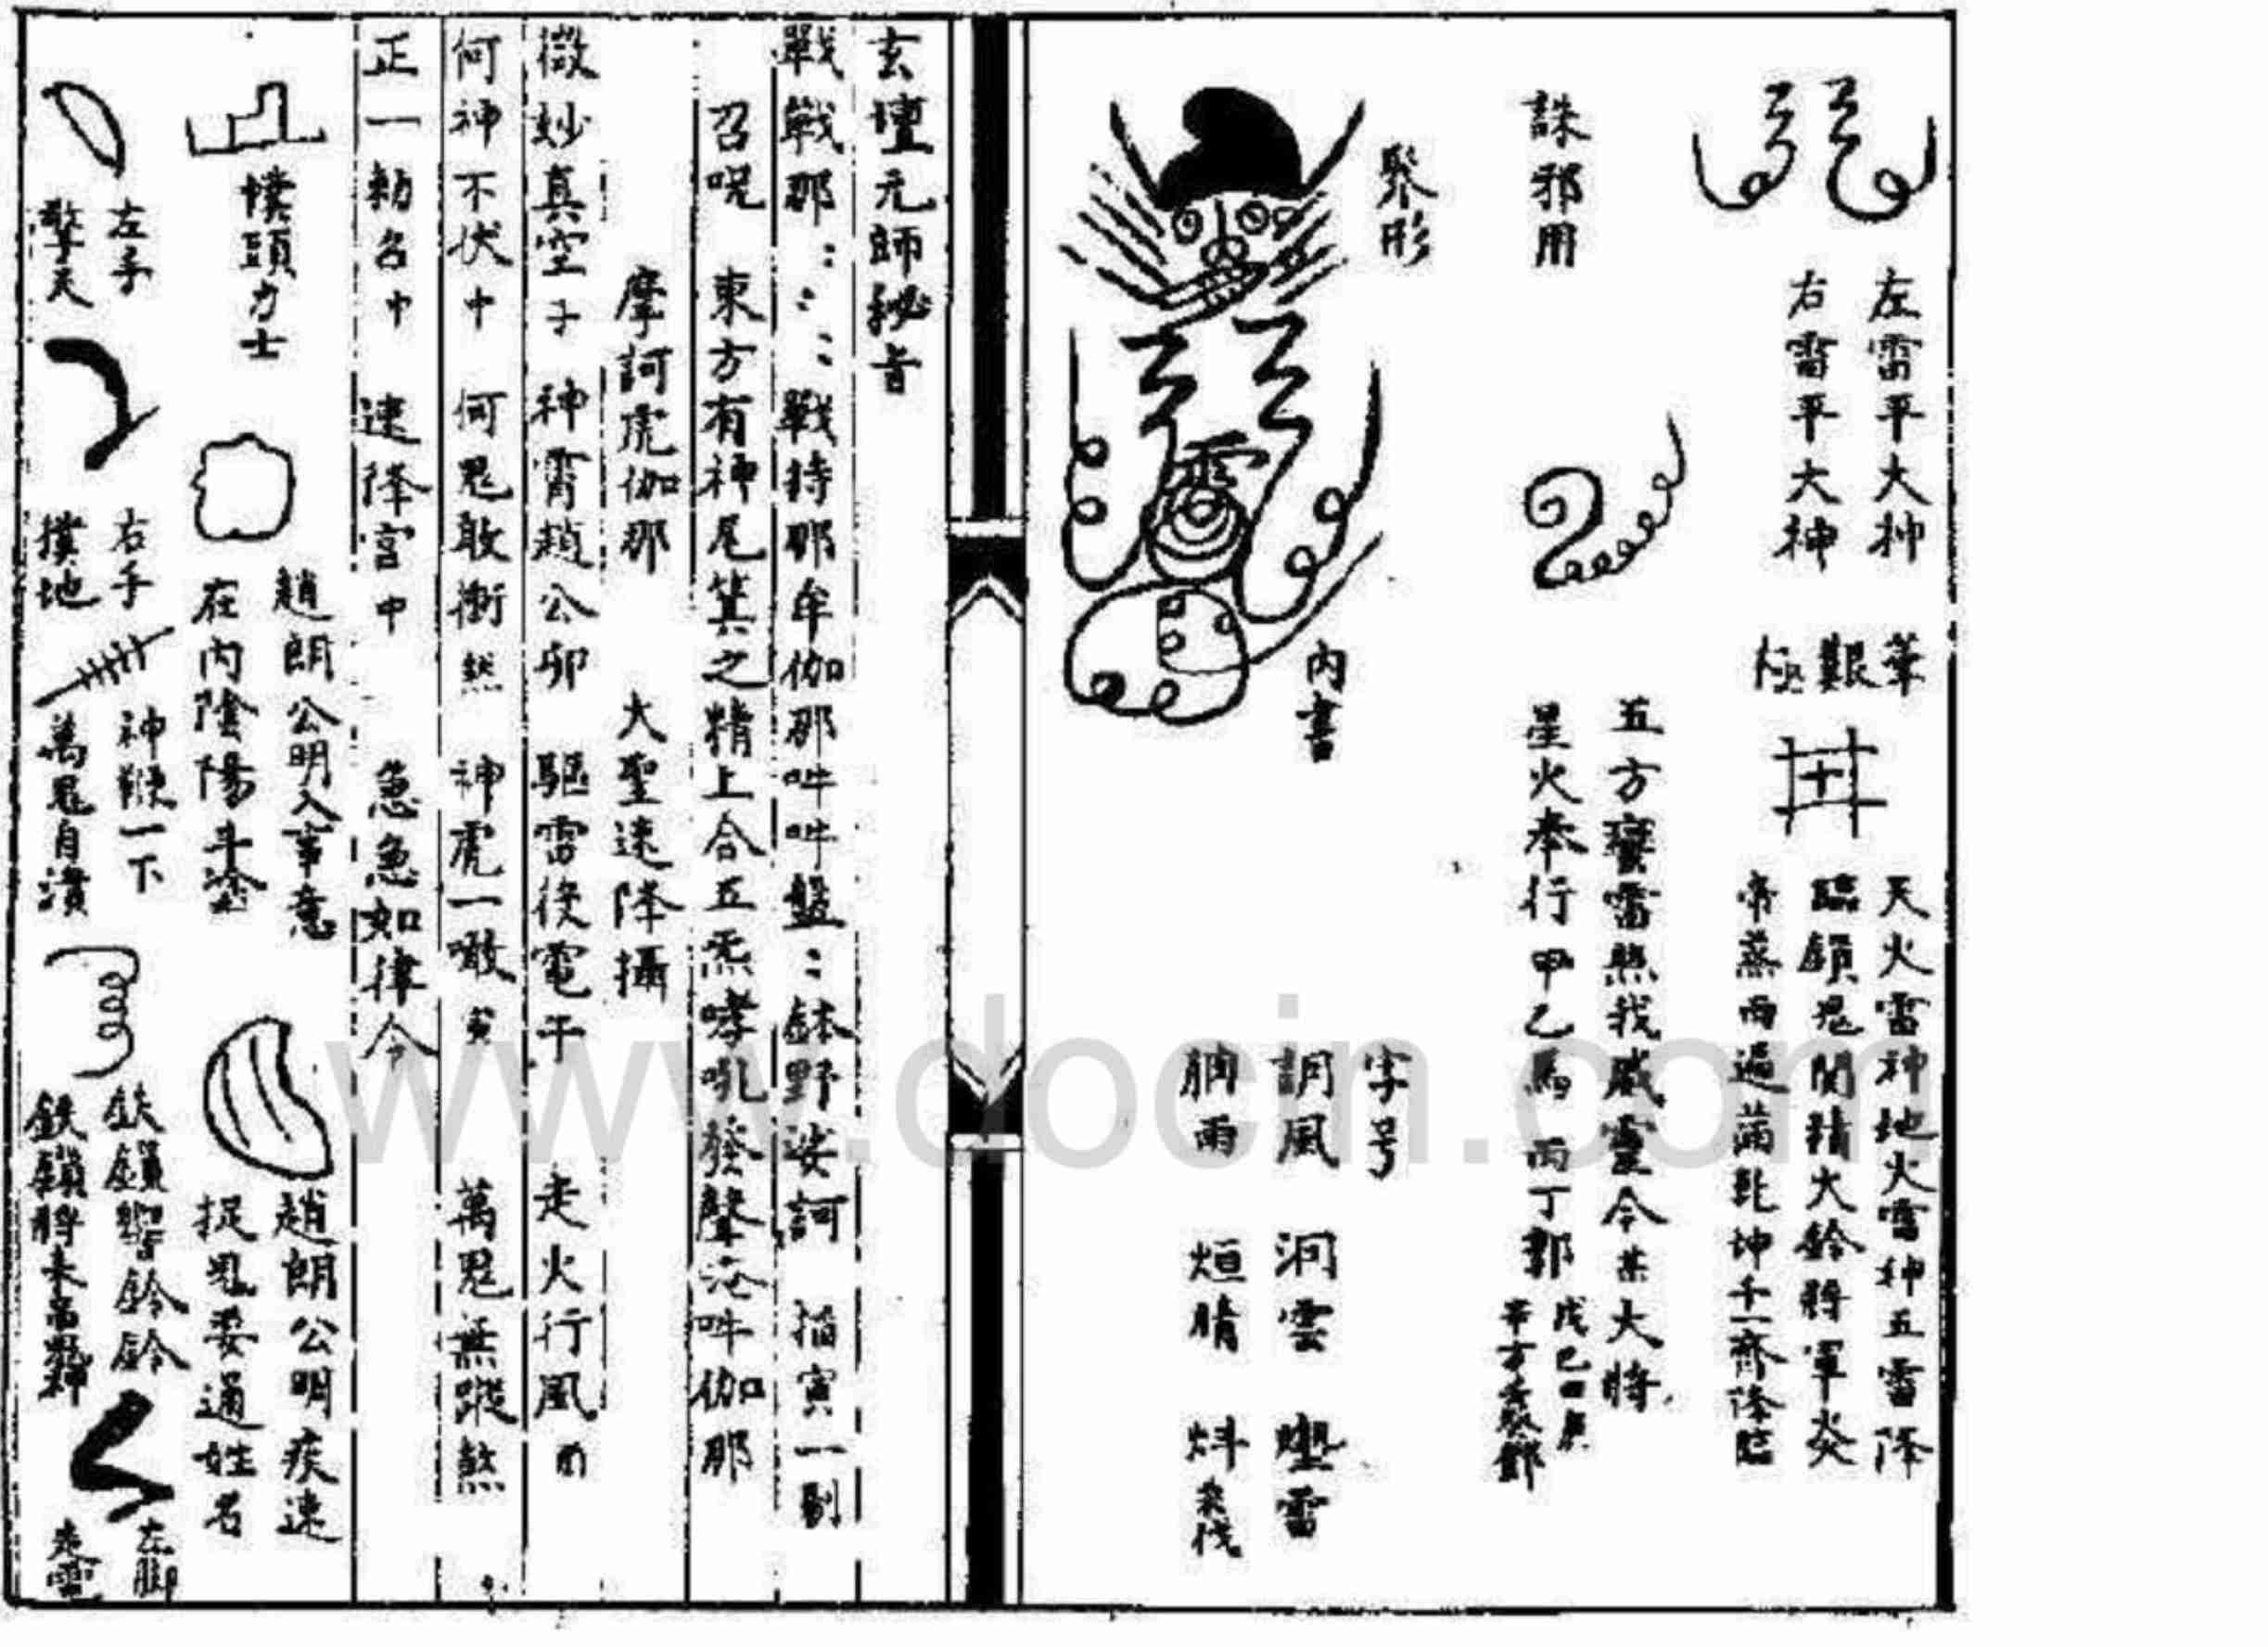 左雷平大神
右雷平大神
天火雷神地火雷神五雷降
臨鎖鬼関精火鈴將軍炎
帝蒸雨遍満乾坤千一齊降臨
誅邪用
五方蠻雷無我威靈令某大將
星火奉行甲乙馬 丙丁郭
聚形
雷
內書
字号
調風 洞雲 雷
雨 烜晴
玄壇元師秘旨
戰戰那：：：戰持那牟伽那吽吽盤：鉢野娑訶 掐寅一剔
召呪 東方有神尾箕之精上合五炁哮吼發聲吽伽那
摩訶虎伽那 大聖速降攝
微妙真空子 神霄趙公卯 驅雷役電午 走火行風酉
何神不伏中 何鬼敢衝 神虎一噉寅 萬鬼無蹤煞
正一勅召中 速降宮中 急急如律令
幞頭力士
趙朗公明入事意
在內陰陽斗
趙朗公明疾速
捉鬼要通姓名
左手
擎天
右手
撲地
神鞭一下
萬鬼自潰
鉄鎖響鈴鈴
鉄鎖將來
左脚
走雷
www.docin.com